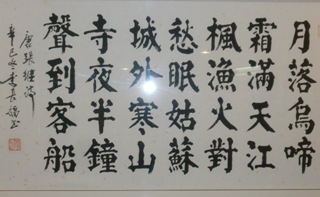 月落烏啼
霜滿天江
楓漁火對
愁眠姑蘇
城外寒山
寺夜半鐘
聲到客船
唐張继诗